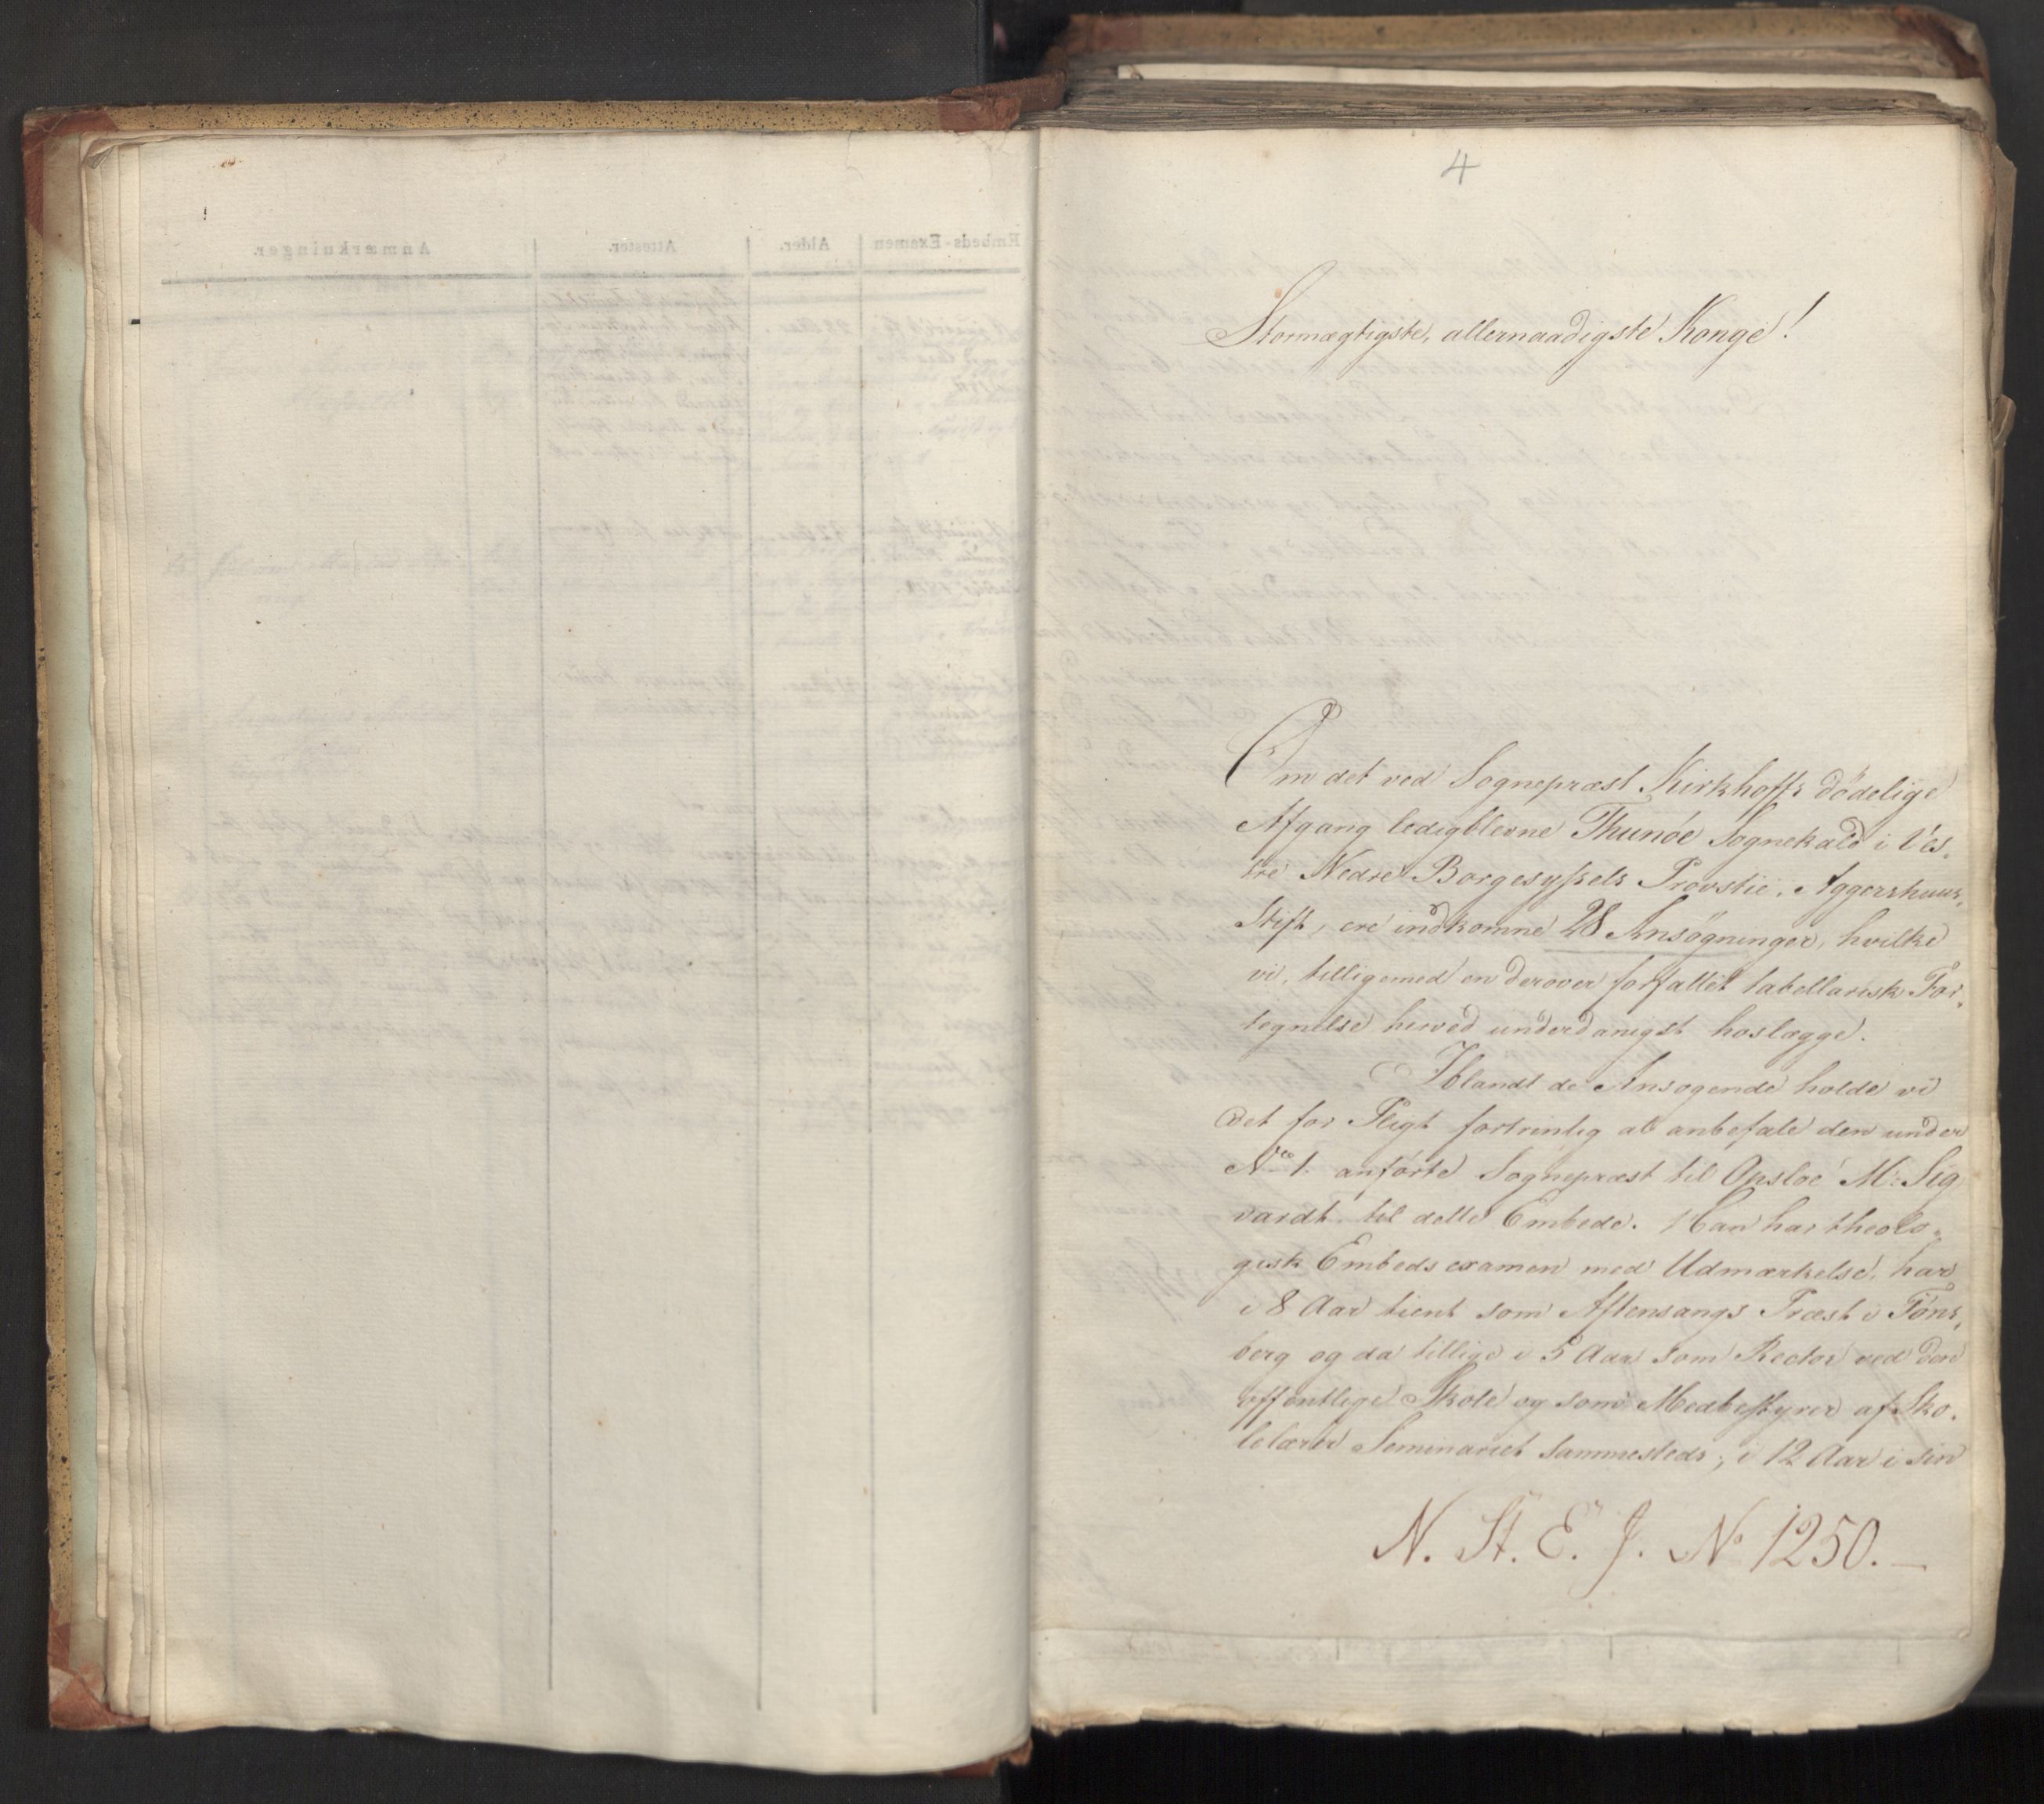 4
Stormægtigste, allernaadigste Konge!
Om det ved Sognepræst Kirkhoffs dødelige
Afgang ledigblevne Thunøe Sognekald i Ves-
tre Nedre Borgesyssels Provstie, Aggershuus,
Stift, ere indkomne 28 Ansøgninger, hvilke
vi, tilligemed en derover forfattet tabellarisk For-
tegnelse herved underdanigst hoslægge.
Iblandt de Ansøgende holde vi
det for Pligt fortrinlig at anbefale den under
No 1. anførte Sognepræst til Opsloe Mr. Sig
vardt til dette Embede. Han har theolo-
gisk Embedsexamen med Udmærkelse, har
i 8 Aar tient som Aftensangs Præst i Tøns,
berg og da tillige i 5 Aar som Rector ved den
offentlige Skole og som Medbestyrer af Sko-
lelærer Seminariet sammesteds; i 12 Aar i sin
N. St. E. J. No 1250.—